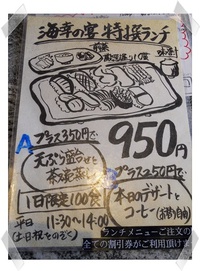 海幸の宴 特撰ランチ
前菜
味噌汁
950円
A プラス350円で
天ぷら盛合せと
茶碗蒸し
B プラス250円で
本日のデザートと
コーヒー(お替り自由)
1日限定100食
平日 11:30〜14:00
(土日祝をのぞく)
ランチメニューご注文の
全ての割引券がご利用頂けま